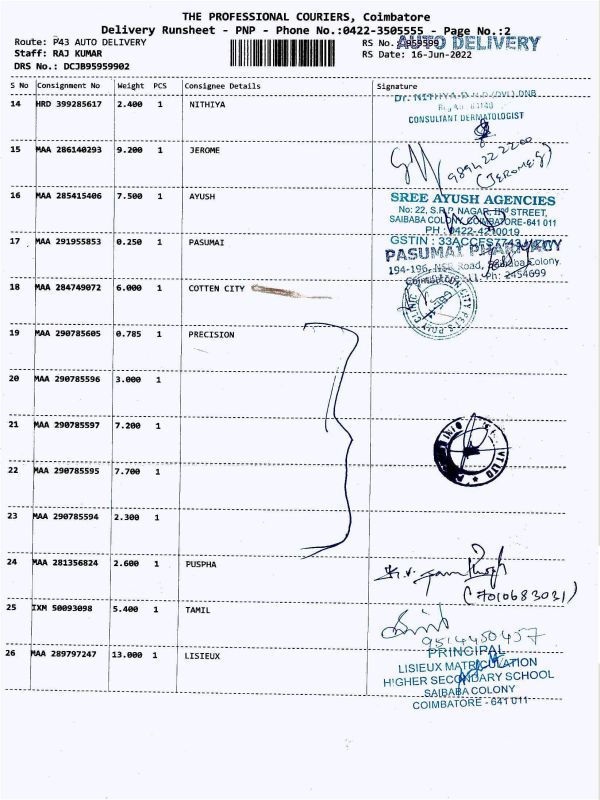 THE PROFESSIONAL COURIERS, Coimbatore
Delivery Runsheet - PNP - Phone No.:0422-3505555 - Page No.:2
Route: P43 AUTO DELIVERY RS No.: AUTO DELIVERY
Staff: RAJ KUMAR RS Date: 16-Jun-2022
DRS No.: DCJB95959902
S No Consignment No Weight PCS Consignee Details Signature
14 HRD 399285617 2.400 1 NITHIYA
CONSULTANT DERMATOLOGIST
15 MAA 286140293 9.200 1 JEROME
9894222200
(JEROME.J)
16 MAA 285415406 7.500 1 AYUSH
SREE AYUSH AGENCIES
No: 22, S.R.P. NAGAR, STREET,
SAIBABA COLONY, COIMBATORE-641 011
PH : 0422-4210019
17 MAA 291955853 0.250 1 PASUMAI
GSTIN :
PASUMAI PHARMACY
194-196, NSR Road, Saibaba Colony,
Ph: 2454699
18 MAA 284749072 6.000 1 COTTEN CITY
19 MAA 290785605 0.785 1 PRECISION
20 MAA 290785596 3.000 1
21 MAA 290785597 7.200 1
22 MAA 290785595 7.700 1
23 MAA 290785594 2.300 1
24 MAA 281356824 2.600 1 PUSPHA
(7010683031)
25 IXM 50093098 5.400 1 TAMIL
9514450457
26 MAA 289797247 13.000 1 LISIEUX
PRINCIPAL
LISIEUX MATRICULATION
HIGHER SECONDARY SCHOOL
SAIBABA COLONY
COIMBATORE - 641 011